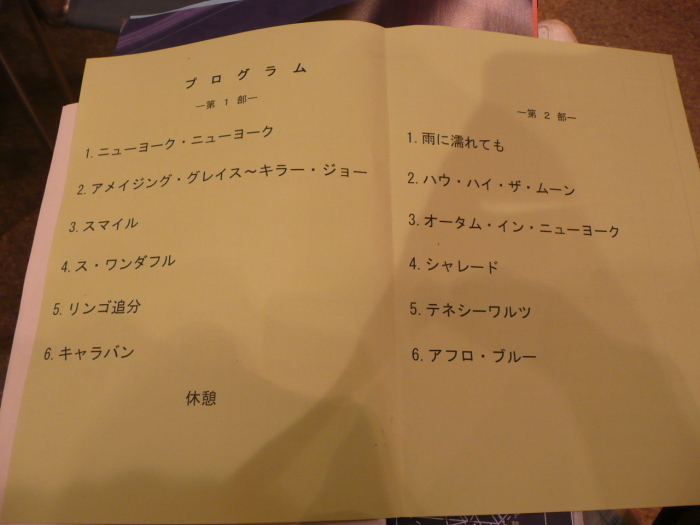 プログラム
―第 1 部―
1. ニューヨーク・ニューヨーク
2. アメイジング・グレイス～キラー・ジョー
3. スマイル
4. ス・ワンダフル
5. リンゴ追分
6. キャラバン
休憩
―第 2 部―
1. 雨に濡れても
2. ハウ・ハイ・ザ・ムーン
3. オータム・イン・ニューヨーク
4. シャレード
5. テネシーワルツ
6. アフロ・ブルー